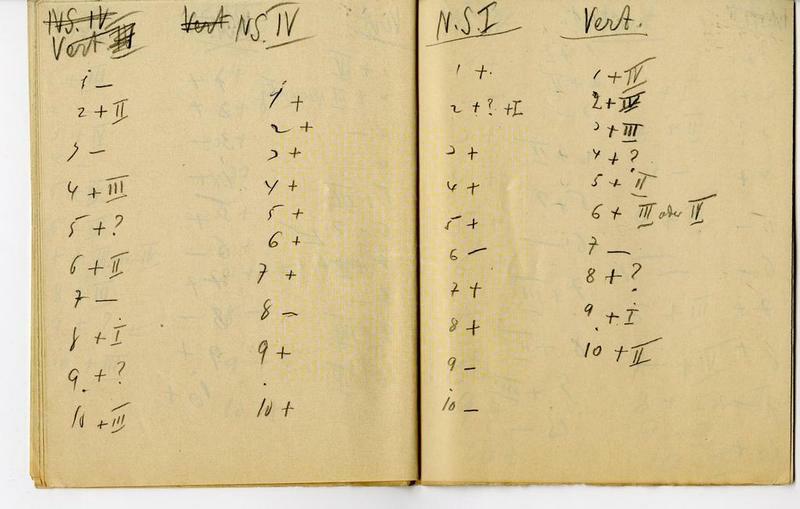 NS. IV
Vert
1 —
2 + II
3 —
4 + III
5 + ?
6 + II
7 —
8 + I
9 + ?
10 + III
Vert. NS. IV
1 +
2 +
3 +
4 +
5 +
6 +
7 +
8 —
9 +
10 +
N.S. I
1 +
2 + ? + I
3 +
4 +
5 +
6 —
7 +
8 +
9 —
10 —
Vert.
1 + IV
2 +
3 + III
4 + ?
5 + II
6 + III oder IV
7 —
8 + ?
9 + I
10 + II